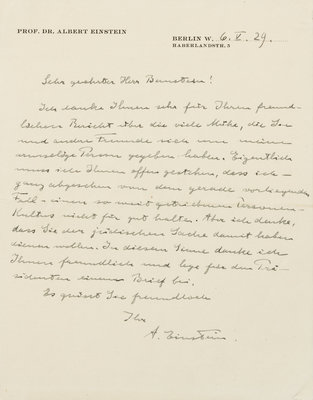 PROF. DR. ALBERT EINSTEIN
BERLIN W. 6. V. 29.
HABERLANDSTR. 5
Sehr geehrter Herr Bernstein!
Ich danke Ihnen sehr für Ihren freund-
lichen Bericht über die viele Mühe, die Sie
und andre Freunde sich um meine
armselige Person gegeben haben. Eigentlich
muss ich Ihnen offen gestehen, dass ich
ganz abgesehen von dem gerade vorliegenden
Fall - einen so weit getriebenen Personen-
Kultus nicht für gut halte. Aber ich denke,
dass Sie der jüdischen Sache damit haben
dienen wollen. In diesem Sinne danke ich
Ihnen freundlich und lege für den Prä-
sidenten einen Brief bei.
Es grüsst Sie freundlich
Ihr
A. Einstein.